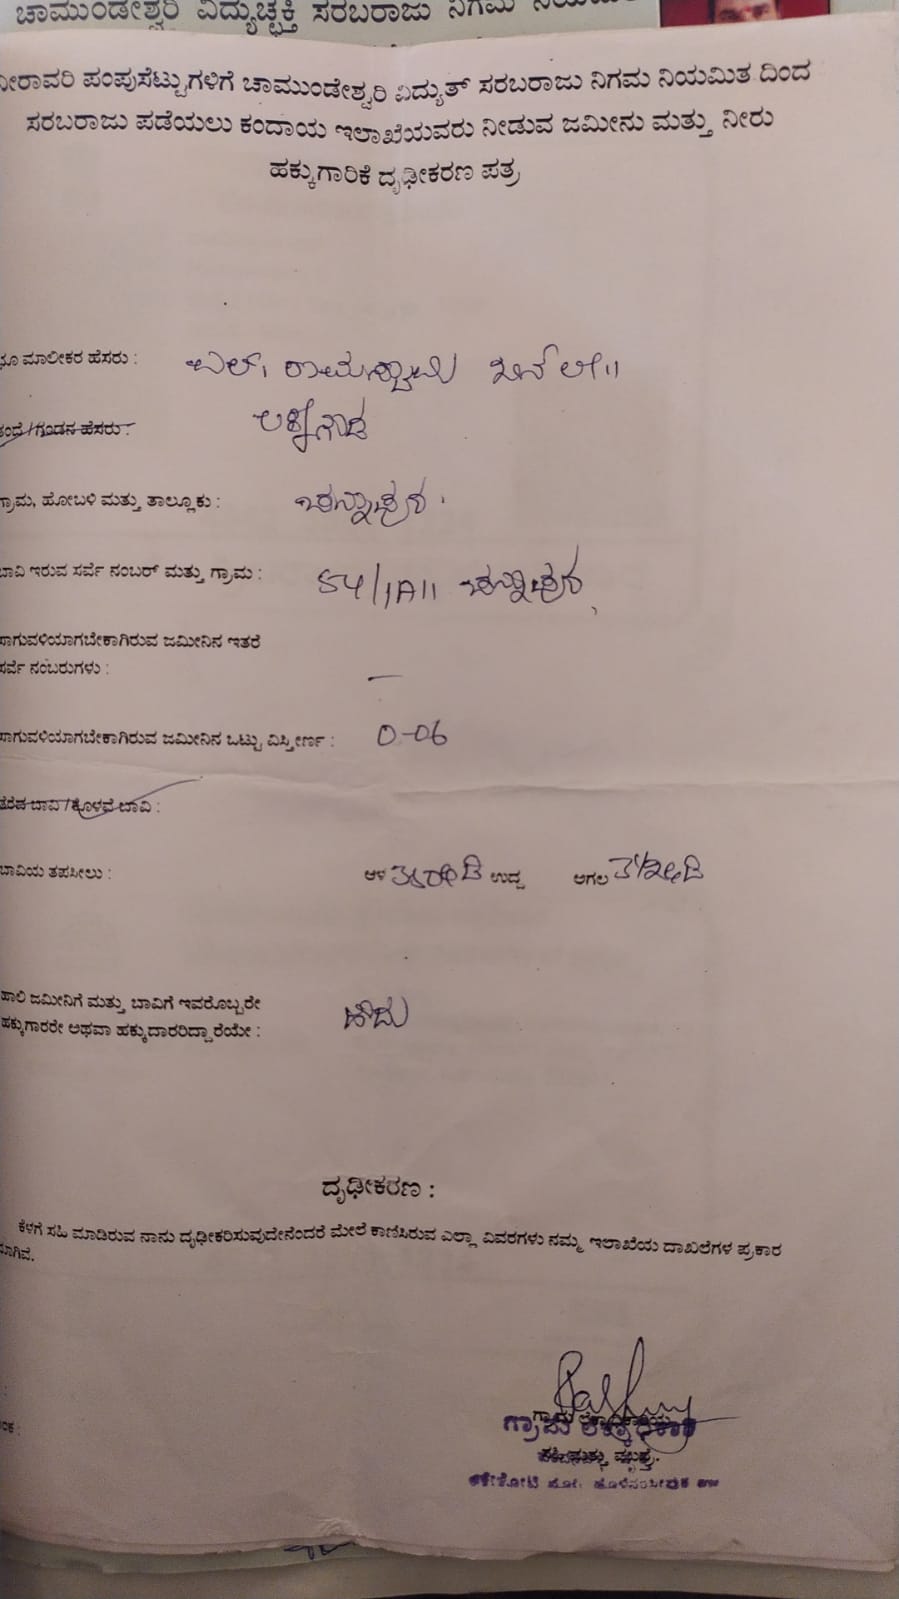 ಚಾಮುಂಡೇಶ್ವರಿ ವಿದ್ಯುಚ್ಛಕ್ತಿ ಸರಬರಾಜು ನಿಗಮ
ನೀರಾವರಿ ಪಂಪುಸೆಟ್ಟುಗಳಿಗೆ ಚಾಮುಂಡೇಶ್ವರಿ ವಿದ್ಯುತ್ ಸರಬರಾಜು ನಿಗಮ ನಿಯಮಿತ ದಿಂದ
ಸರಬರಾಜು ಪಡೆಯಲು ಕಂದಾಯ ಇಲಾಖೆಯವರು ನೀಡುವ ಜಮೀನು ಮತ್ತು ನೀರು
ಹಕ್ಕುಗಾರಿಕೆ ದೃಢೀಕರಣ ಪತ್ರ
ಭೂ ಮಾಲೀಕರ ಹೆಸರು : ಎಲ್. ರಾಮಸ್ವಾಮಿ ಬಿನ್ ಲೇ||
ತಂದೆ/ಗಂಡನ ಹೆಸರು :
ಗ್ರಾಮ, ಹೋಬಳಿ ಮತ್ತು ತಾಲ್ಲೂಕು : ಚನ್ನಾಪುರ
ಬಾವಿ ಇರುವ ಸರ್ವೆ ನಂಬರ್ ಮತ್ತು ಗ್ರಾಮ : 54/1A11 ಚನ್ನಾಪುರ
ಸಾಗುವಳಿಯಾಗಬೇಕಾಗಿರುವ ಜಮೀನಿನ ಇತರೆ
ಸರ್ವೆ ನಂಬರುಗಳು : —
ಸಾಗುವಳಿಯಾಗಬೇಕಾಗಿರುವ ಜಮೀನಿನ ಒಟ್ಟು ವಿಸ್ತೀರ್ಣ : 0-06
ತೆರೆದ ಬಾವಿ/ಕೊಳವೆ ಬಾವಿ :
ಬಾವಿಯ ತಪಸೀಲು : ಆಳ ಉದ್ದ ಅಗಲ
ಹಾಲಿ ಜಮೀನಿಗೆ ಮತ್ತು ಬಾವಿಗೆ ಇವರೊಬ್ಬರೇ
ಹಕ್ಕುಗಾರರೇ ಅಥವಾ ಹಕ್ಕುದಾರರಿದ್ದಾರೆಯೇ : ಹೌದು
ದೃಢೀಕರಣ :
ಕೆಳಗೆ ಸಹಿ ಮಾಡಿರುವ ನಾನು ದೃಢೀಕರಿಸುವುದೇನೆಂದರೆ ಮೇಲೆ ಕಾಣಿಸಿರುವ ಎಲ್ಲಾ ವಿವರಗಳು ನಮ್ಮ ಇಲಾಖೆಯ ದಾಖಲೆಗಳ ಪ್ರಕಾರ
ಗ್ರಾಮ ಲೆಕ್ಕಾಧಿಕಾರಿ